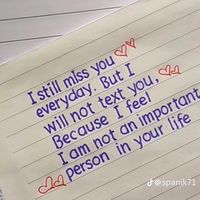 I still miss you
everyday. But I
will not text you,
Because I feel
I am not an important
person in your life
@spanik71